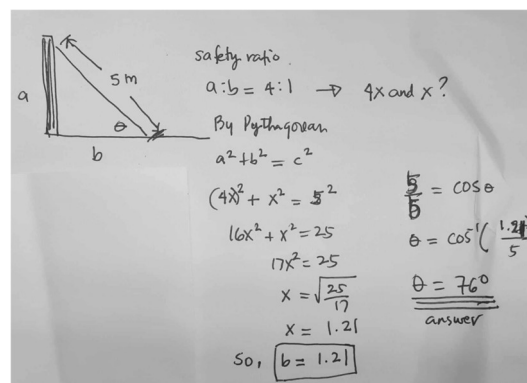 a
5 m
θ
b
safety ratio.
a:b = 4:1 → 4x and x?
By Pythagorean
a² + b² = c²
(4x)² + x² = 5²
16x² + x² = 25
17x² = 25
x = √(25/17)
x = 1.21
So, b = 1.21
b/5 = cosθ
θ = cos⁻¹(1.21/5
θ = 76°
answer